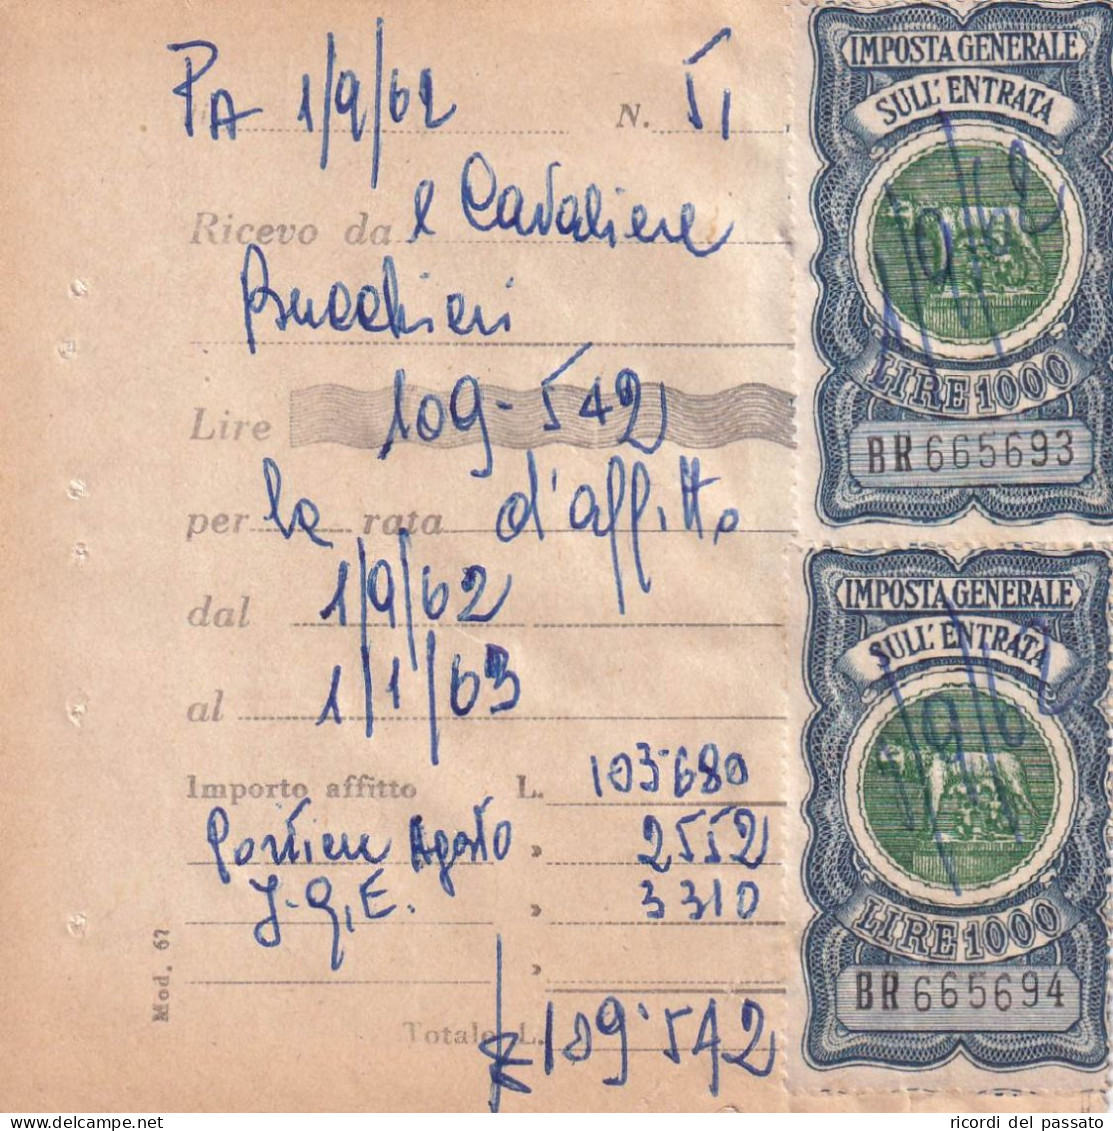 PA 1/9/62 N. 51
Ricevo da l Cavaliere
Bucchieri
Lire 109-542
per la rata d'affitto
dal 1/9/62
al 1/1/63
Importo affitto L. 103·680
Portiere Agosto » 2552
I.G.E. » 3310
»
Totale L. 109·542
Mod. 67
IMPOSTA GENERALE
SULL'ENTRATA
1/9/62
LIRE 1000
BR 665693
IMPOSTA GENERALE
SULL'ENTRATA
1/9/62
LIRE 1000
BR 665694
ricordi del passato